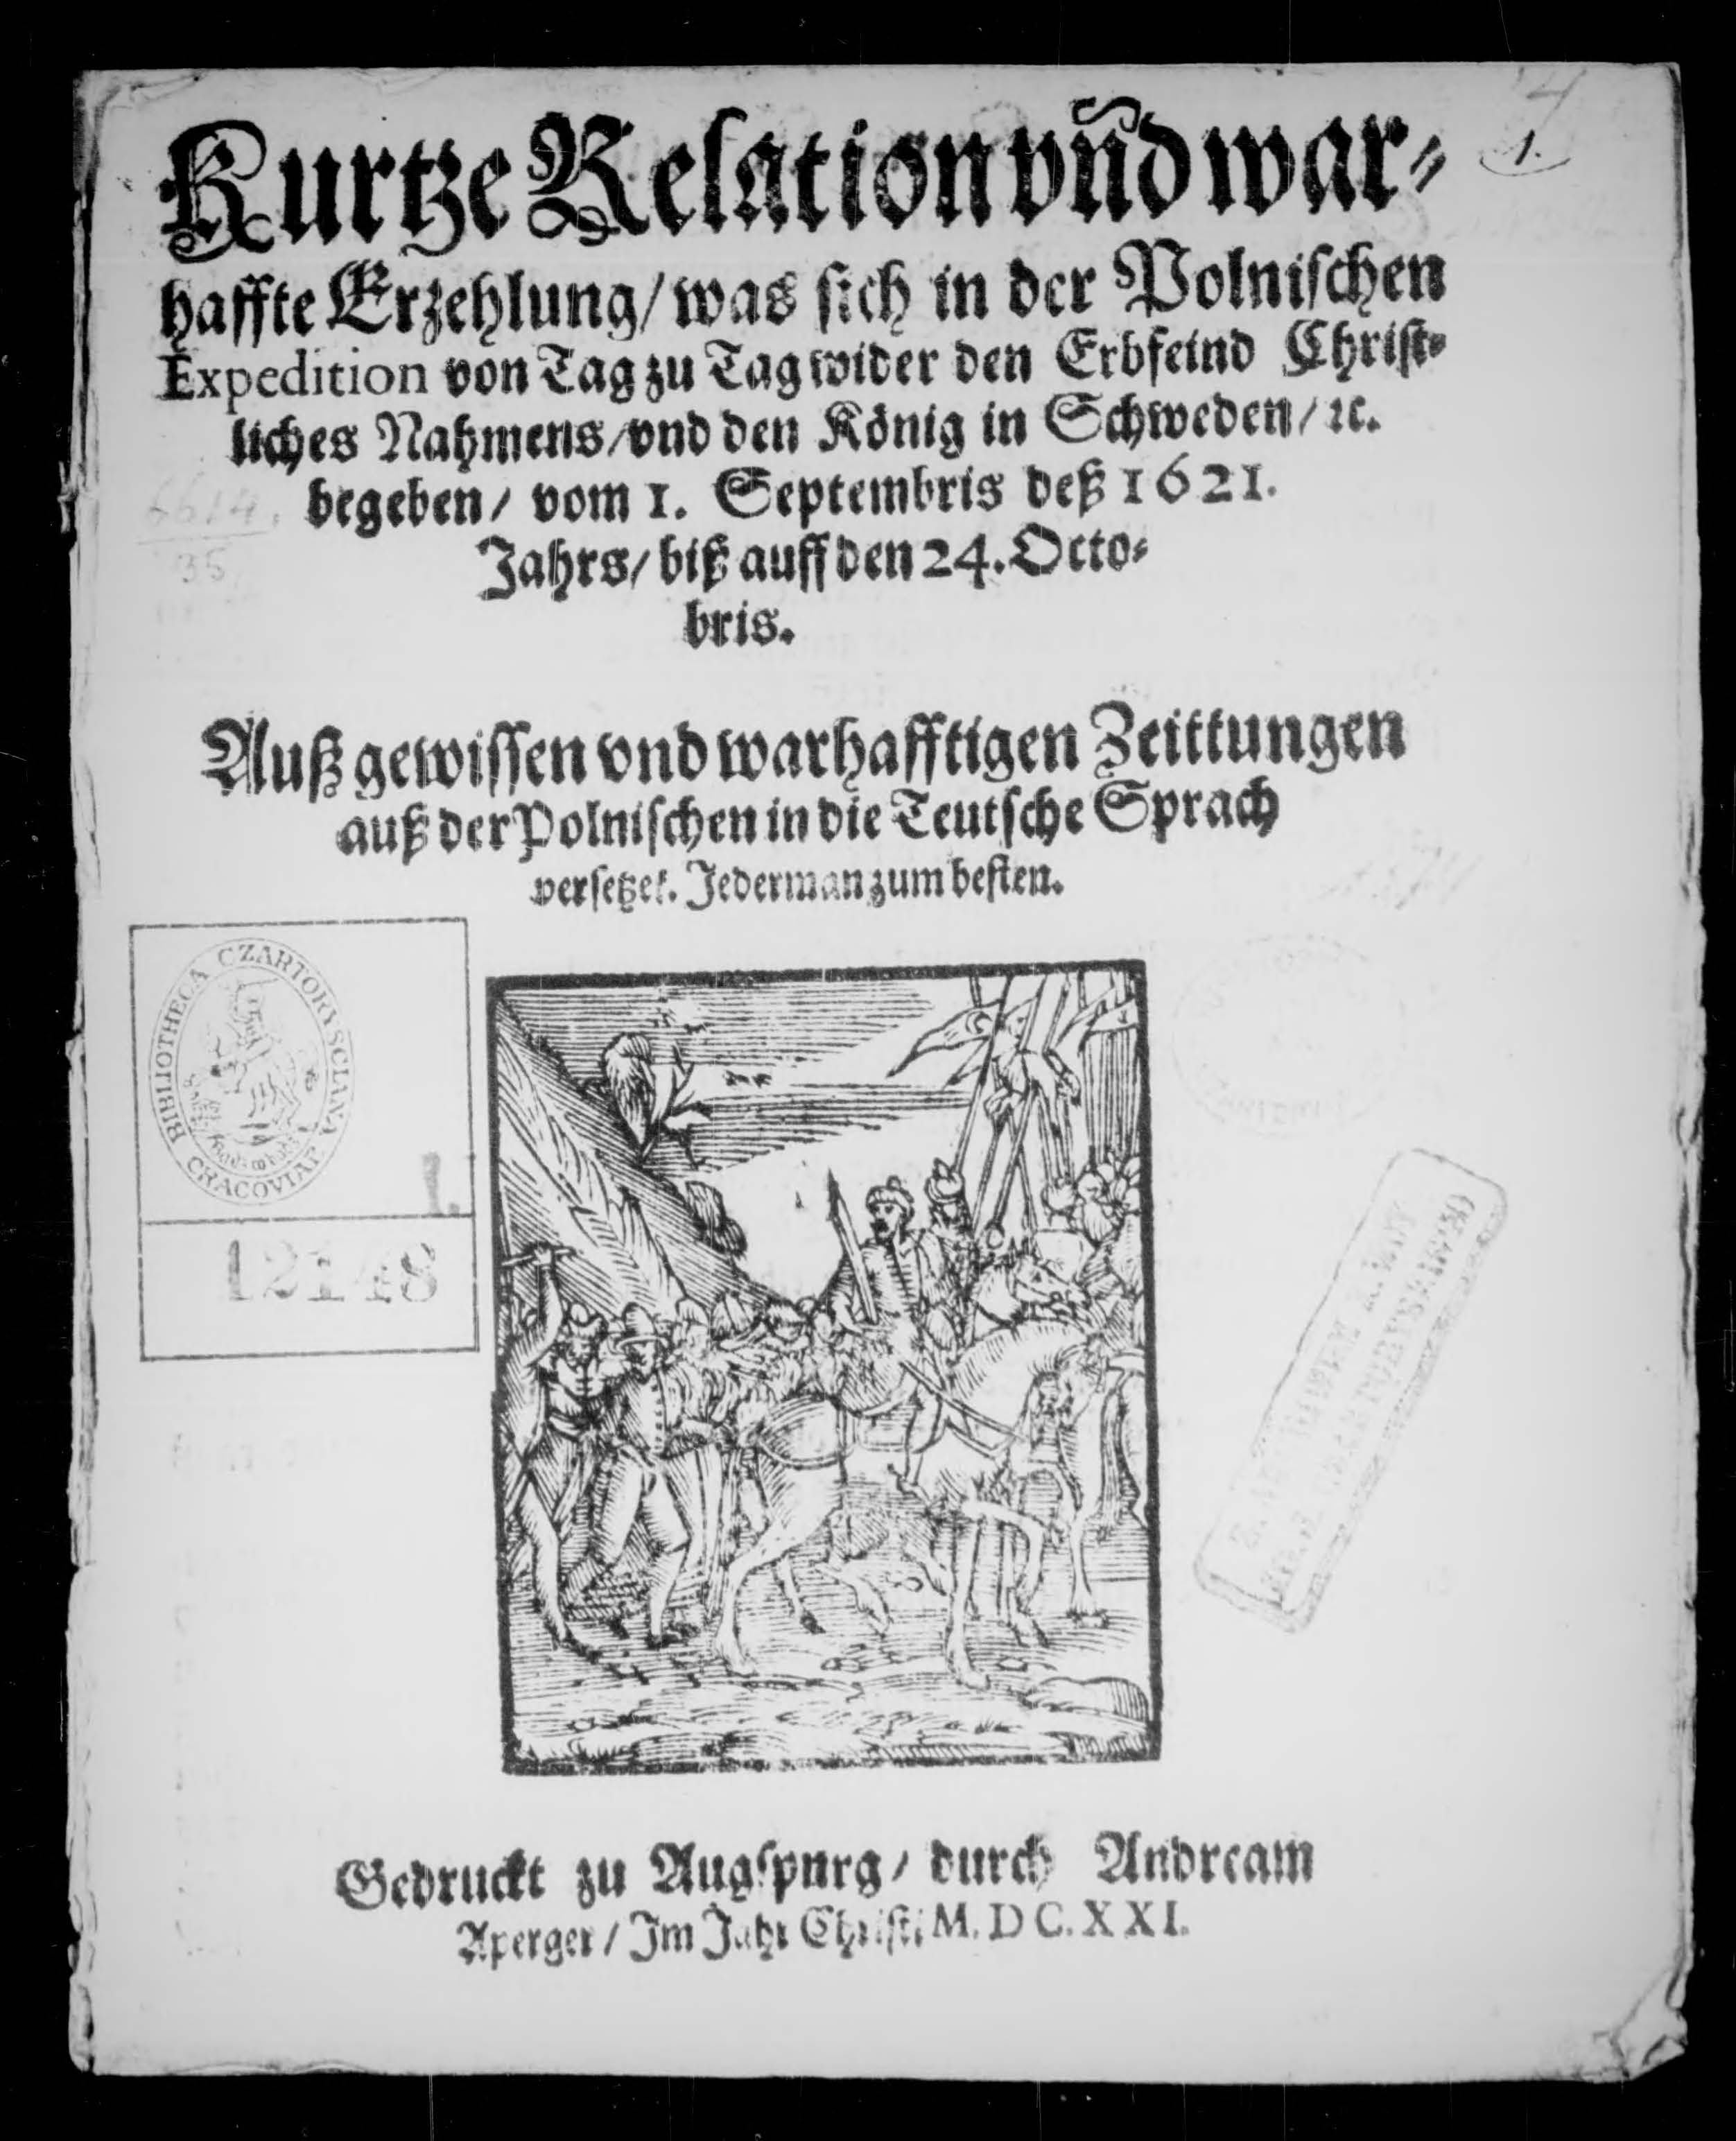 4
1.
Kurtze Relation vñd war-
haffte Erzehlung/ was sich in der Polnischen
Expedition von Tag zu Tag wider den Erbfeind Christ-
liches Nahmens/ vnd den König in Schweden/ ꝛc.
begeben/ vom 1. Septembris deß 1621.
6614.
35
Jahrs/ biß auff den 24. Octo-
bris.
Auß gewissen vnd warhafftigen Zeittungen
auß der Polnischen in die Teutsche Sprach
versetzet. Jederman zum besten.
BIBLIOTHECA CZARTORYSCIANA
CRACOVIAE
I.
12148
Gedruckt zu Augspurg/ durch Andream
Aperger/ Im Jahr Christi M. D C. X X I.